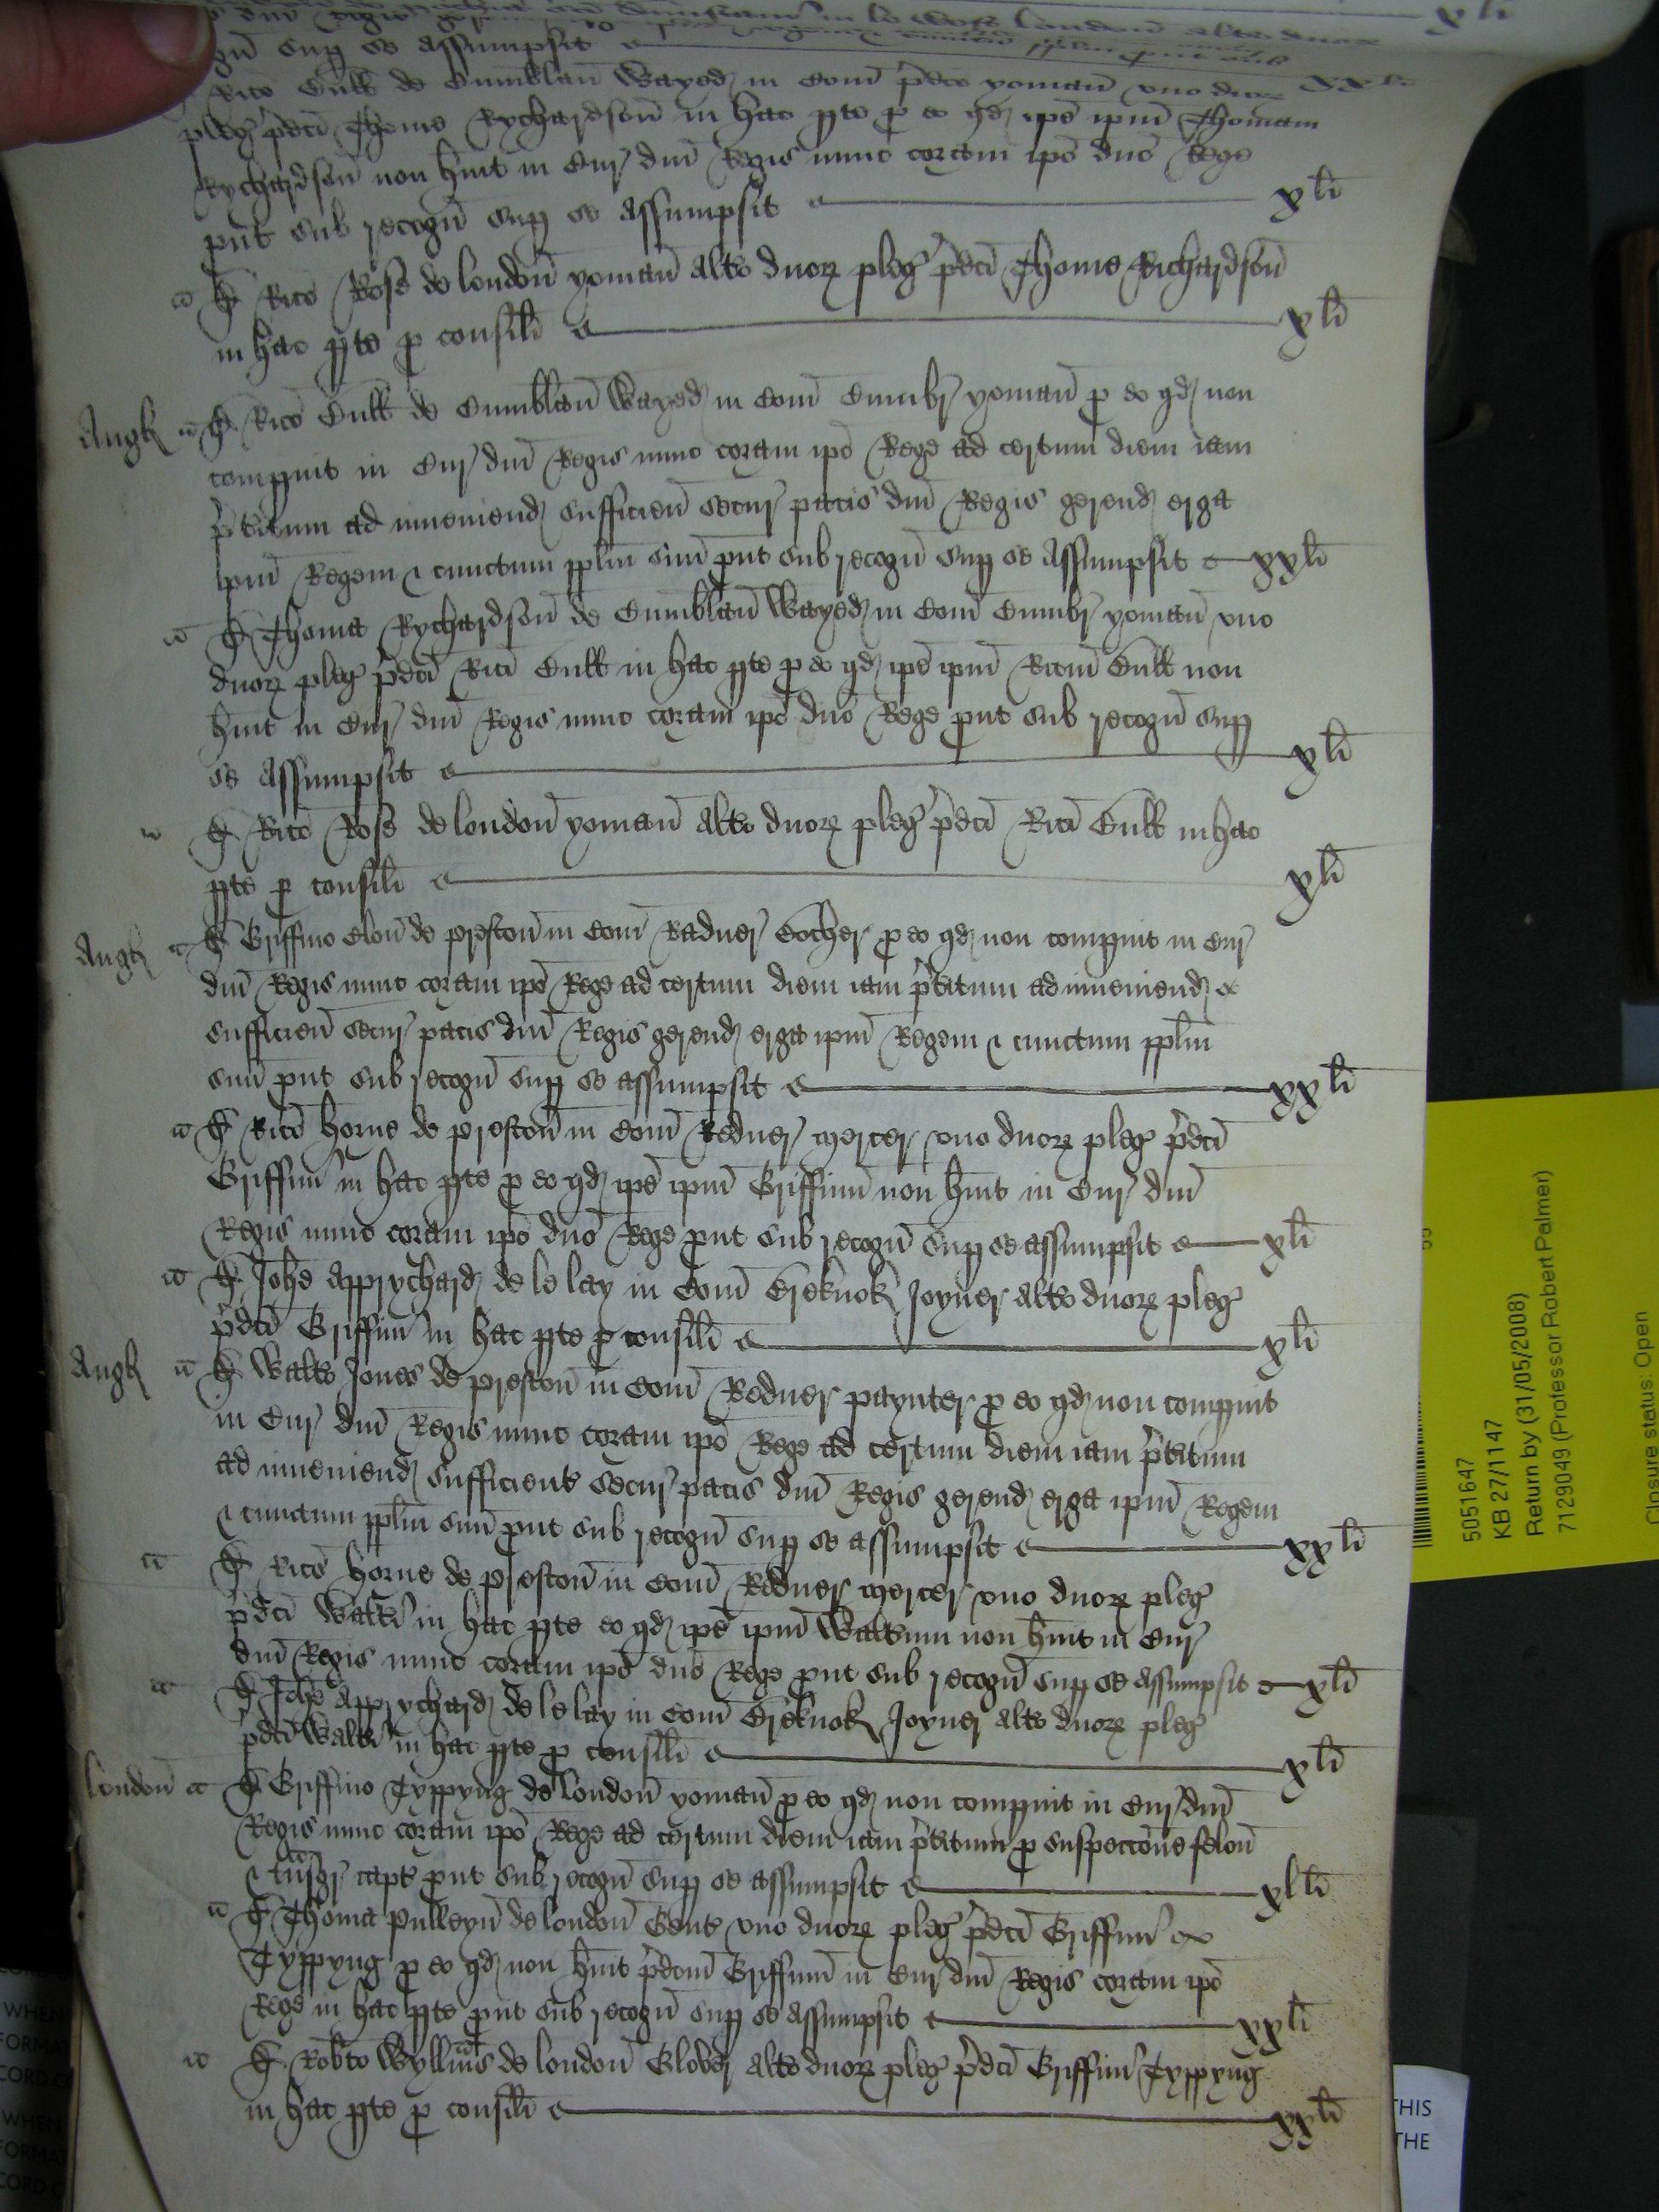 xli
gū sup se assumpsit
Rico Gull de Cumblan Wayed in Com p̄dco yoman uno duor xxli
pleg p̄dci Thome Rychardson in hac pte p eo qd ipe ipm Thomam
Rychardson non huit in Cur dni Regis nunc coram ipo dno Rege
put sub recogn sup se assumpsit xli
D Rico Rose de london yoman alto duor pleg p̄dci Thome Richardson
in hac pte p consili xli
Angl D Rico Gull de Cumblan Wayed in Com Cumbr yoman p eo qd non
compuit in Cur dni Regis nunc coram ipo Rege ad certum diem iam
p̄titum ad inueniend sufficien secur pacis dni Regis gerend erga
ipm Regem & cunctum pplm suu put sub recogn sup se assumpsit xxli
D Thoma Rychardson de Cumblan Wayed in Com Cumbr yoman uno
duor pleg p̄dci Rici Gull in hac pte p eo qd ipe ipm Ricm Gull non
huit in Cur dni Regis nunc coram ipo dno Rege put sub recogn sup
se assumpsit xli
D Rico Rose de london yoman alto duor pleg p̄dci Rici Gull in hac
pte p consili xli
Angl D Griffino Clon de preston in Com Radner p eo qd non compuit in Cur
dni Regis nunc coram ipo Rege ad certum diem iam p̄titum ad inueniend
sufficien secur pacis dni Regis gerend erga ipm Regem & cunctum pplm
suu put sub recogn sup se assumpsit xxli
D Rici horne de preston in Com Redner mercer uno duor pleg p̄dci
Griffini in hac pte p eo qd ipe ipm Griffinu non huit in Cur dni
Regis nunc coram ipo dno Rege put sub recogn sup se assumpsit xli
D Johe Apprychard de le lay in Com Breknok Joyner alto duor pleg
p̄dci Griffini in hac pte p consili xli
Angl D Walto Jones de preston in Com Redner paynter p eo qd non compuit
in Cur dni Regis nunc coram ipo Rege ad certum diem iam p̄titum
ad inueniend sufficient secur pacis dni Regis gerend erga ipm Regem
& cunctum pplm suu put sub recogn sup se assumpsit xxli
D Rico horne de preston in Com Redner mercer uno duor pleg
p̄dci Walti in hac pte eo qd ipe ipm Waltum non huit in Cur
dni Regis nunc coram ipo dno Rege put sub recogn sup se assumpsit xli
D Johe Apprychard de le lay in Com Breknok Joyner alto duor pleg
p̄dci Walti in hac pte p consili xli
london D Griffino Typpyng de london yoman p eo qd non compuit in Cur dni
Regis nunc coram ipo Rege ad certum diem iam p̄titum p suspeccone felon
capt put sub recogn sup se assumpsit xlli
D Thoma Pulleyn de london Gent uno duor pleg p̄dci Griffini
Typpyng p eo qd non huit p̄dcm Griffinu in Cur dni Regis coram ipo
Rege in hac pte put sub recogn sup se assumpsit xxli
D Robto Wyllms de london Glover alto duor pleg p̄dci Griffini Typpyng
in hac pte p consili xxli
5051647
KB 27/1147
Return by (31/05/2008)
7129049 (Professor Robert Palmer)
Closure status: Open
WHEN
FORMAT
CORD
WHEN
FORMAT
CORD
THIS
THE